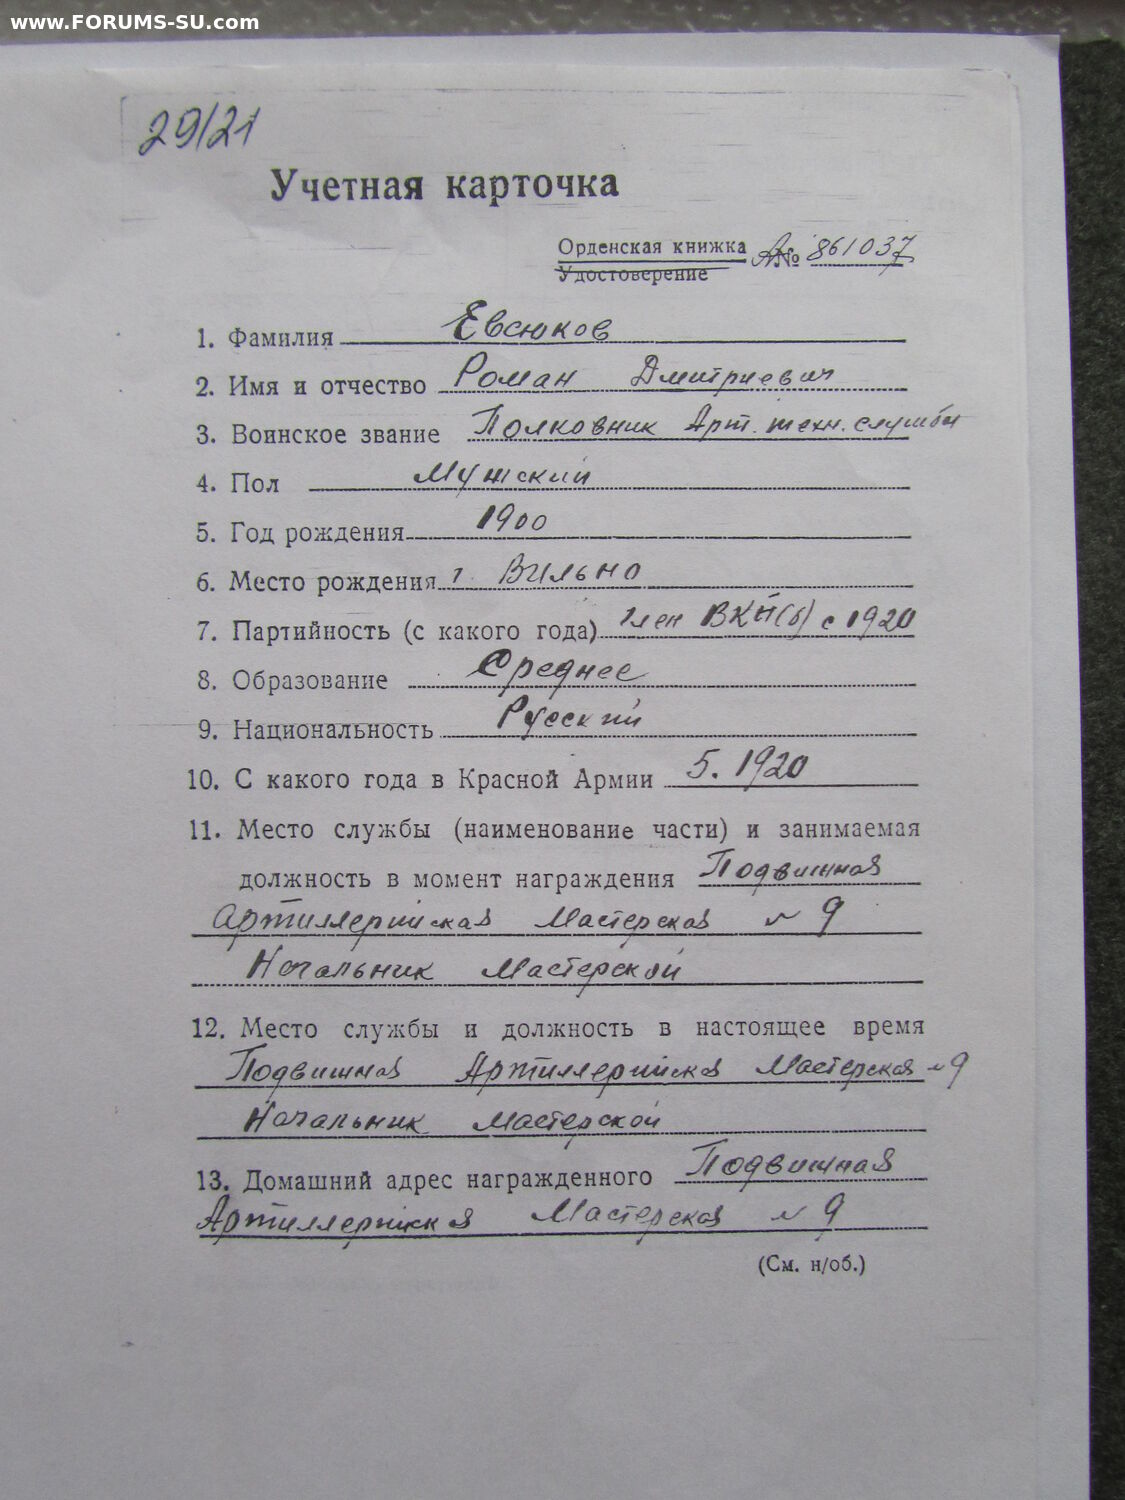 www.FORUMS-SU.com
29/21
Учетная карточка
Орденская книжка А№ 861037
Удостоверение
1. Фамилия Евсюков
2. Имя и отчество Роман Дмитриевич
3. Воинское звание Полковник Арт. техн. службы
4. Пол Мужской
5. Год рождения 1900
6. Место рождения г. Вильно
7. Партийность (с какого года) член ВКП(б) с 1920
8. Образование Среднее
9. Национальность Русский
10. С какого года в Красной Армии 5. 1920
11. Место службы (наименование части) и занимаемая
должность в момент награждения Подвижная
Артиллерийская Мастерская № 9
Начальник Мастерской
12. Место службы и должность в настоящее время
Подвижная Артиллерийская Мастерская № 9
Начальник Мастерской
13. Домашний адрес награжденного Подвижная
Артиллерийская Мастерская № 9
(См. н/об.)